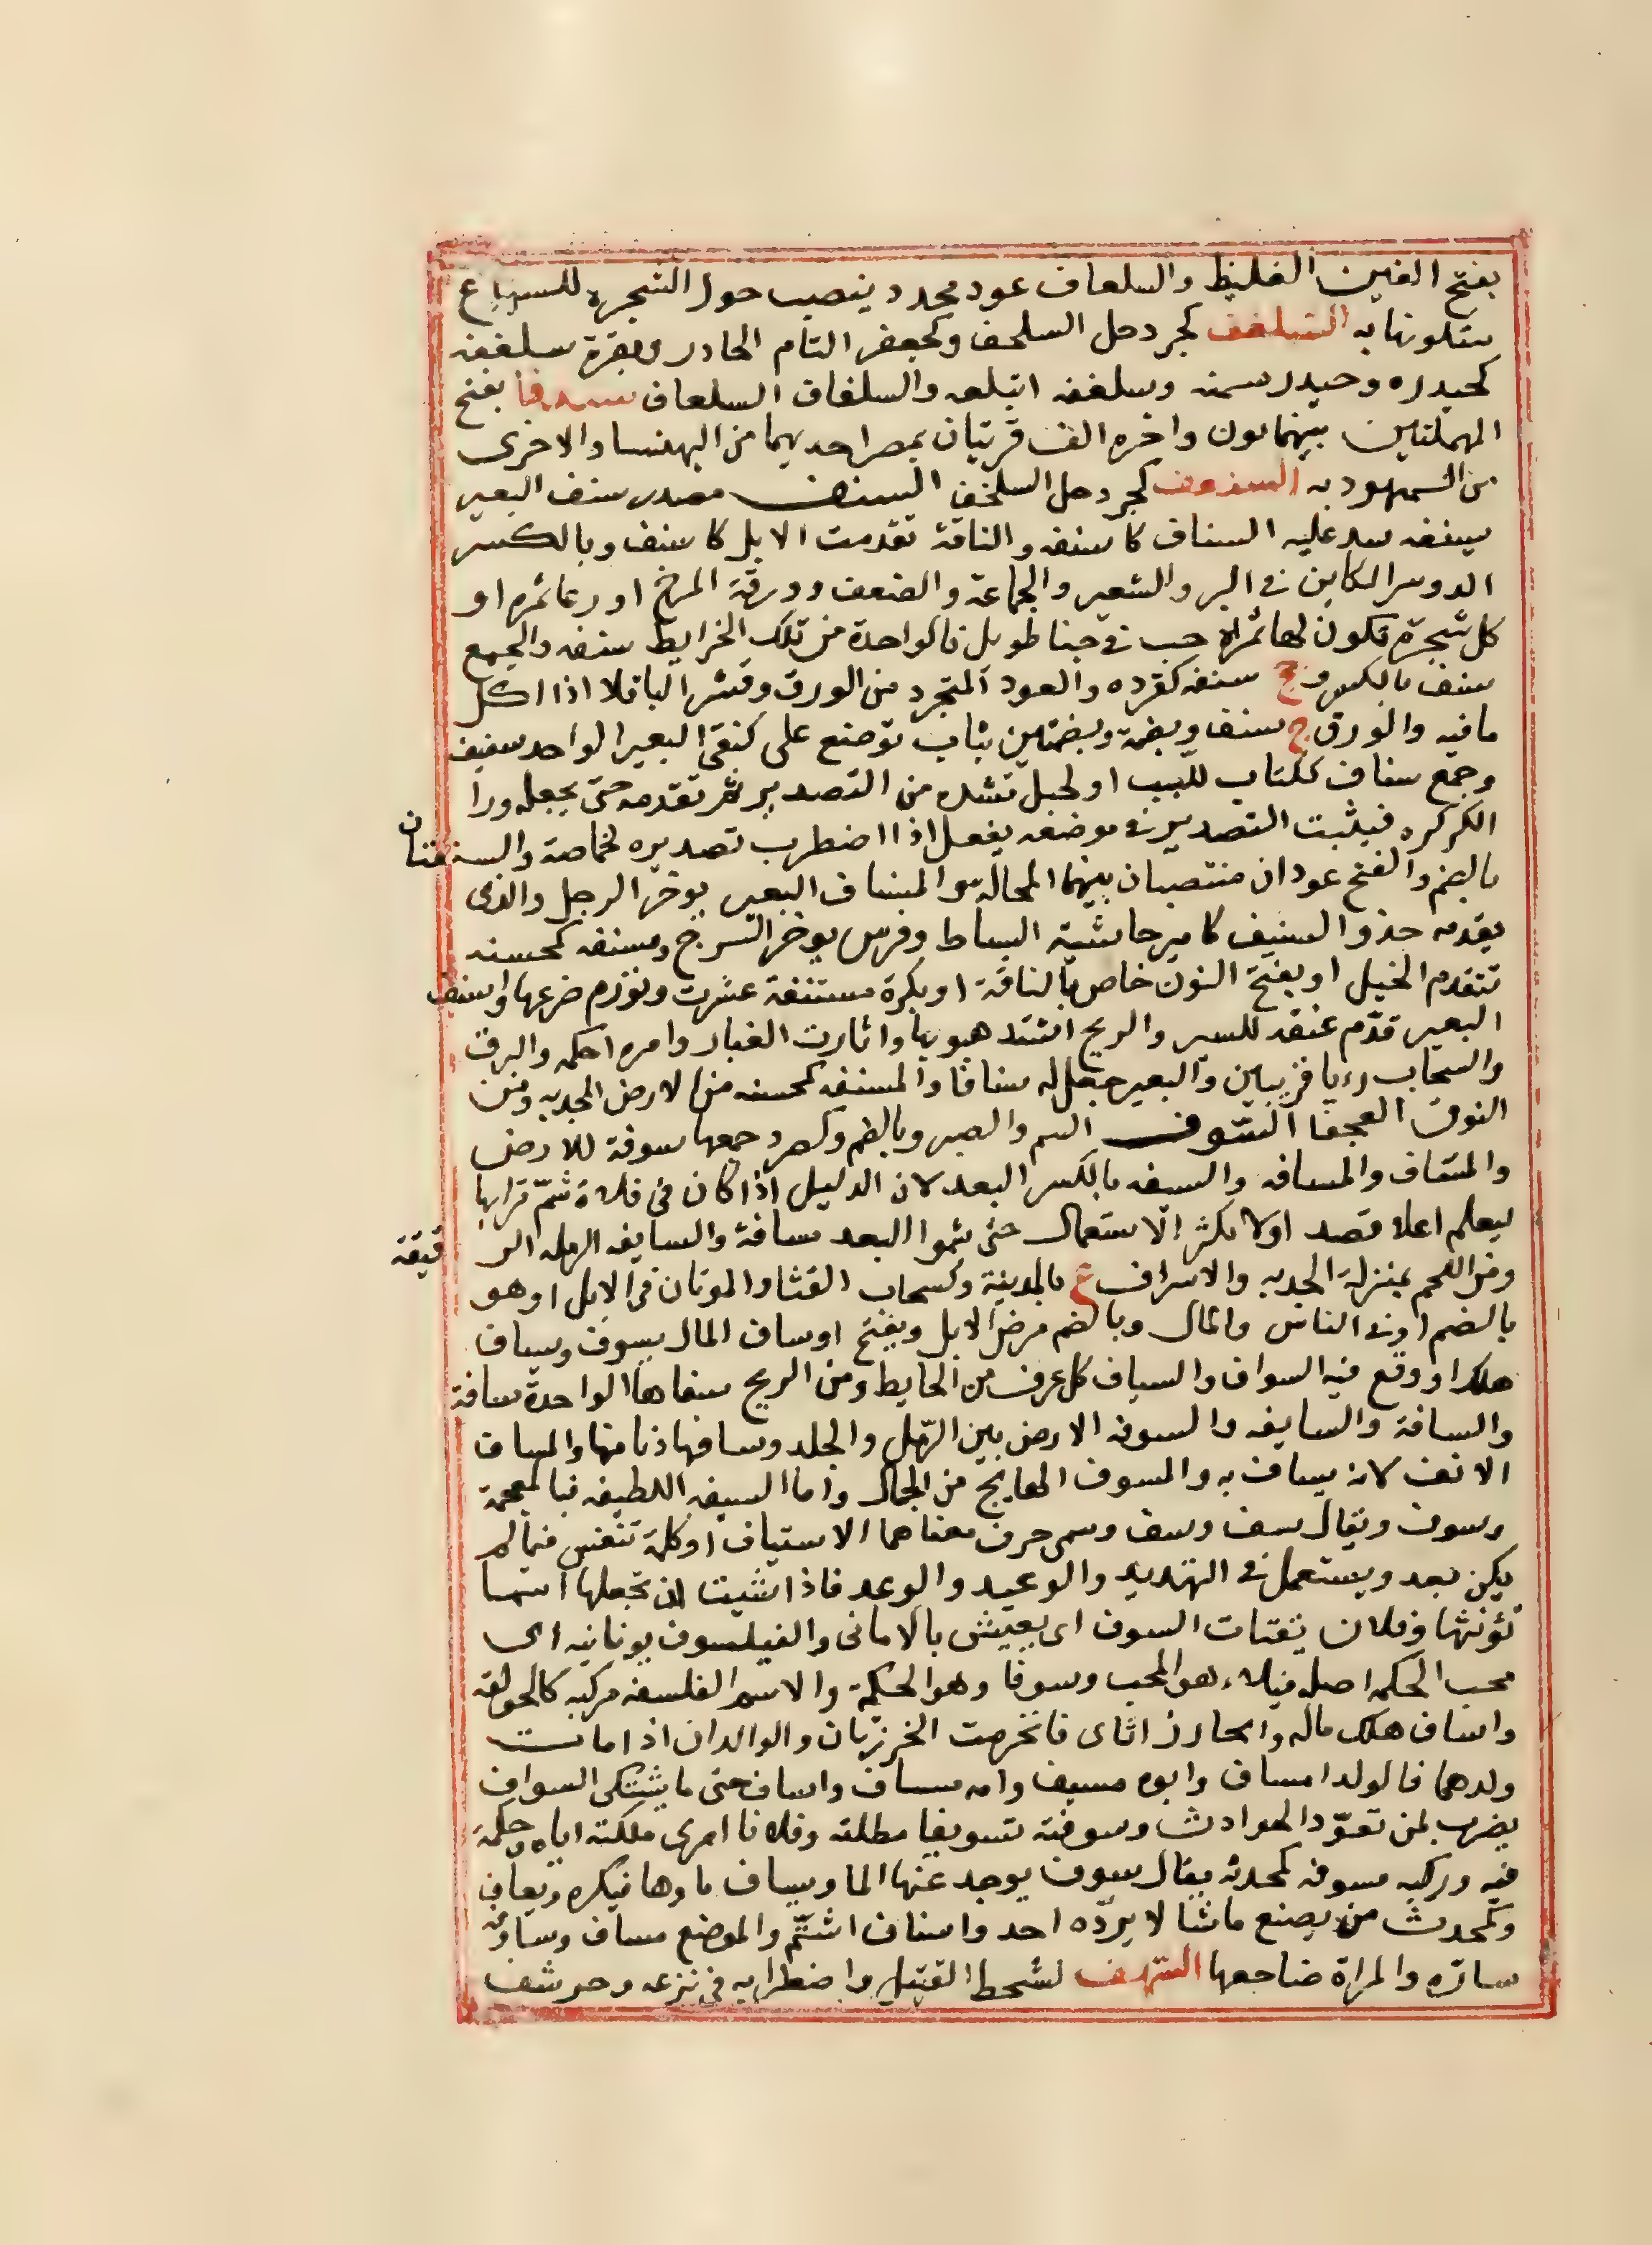 بفتح الغين الغليظ والسلعاف عود محدد ينصب حول الشجرة للسباع
يقتلونها به السلغف كجردحل السلحف وكجعفر التام الحادر وبقرة سلغفه
كحيدره وحيدر سمنه وسلغفه ابتلعه والسلغاف السلعاف سندفا بفتح
المهملتين بينهما نون واخره الف قريتان بمصر احديهما من البهنسا والاخرى
من السمهوديه السنعف كجردحل السلخف السنف مصدر سنف البعير
يسنفه شد عليه السناف كاسنفه والناقة تقدمت الابل كاسنف وبالكسر
الدوسر الكاين في البر والشعير والجماعة والضعف وورقة المرخ او رعا ثمره او
كل شجرة تكون لها ثمراة حب في خبا طويل فالواحدة من تلك الخرايط سنفه والجمع
سنف بالكسر و جج سنفه كقرده والعود المتجرد من الورق وقشر الباقلا اذا اكل
ما فيه والورق ج سنف وبضمة وبضمتين ثياب توضع على كتفي البعير الواحد سنيف
وجمع سناف ككتاب للبب او لحبل تشده من التصدير ثم تقدمه حتى يجعله ورا
الكركره فيثبت التصدير في موضعه يفعل اذا اضطرب تصديره لخماصة والسنفتان
بالضم والفتح عودان منتصبان بينهما المحالة والمسناف البعير يوخر الرحل والذى
يقدمه حذو السنيف كامير حاشية البساط وفرس يوخر السرج ومسنفه كمحسنه
تتقدم الخيل او بفتح النون خاص بالناقة او بكرة مستنفة عشرت وتورم ضرعها واسنف
البعير قدم عنقه للسير والريح اشتد هبوبها واثارت الغبار وامره احكمه والبرق
والسحاب رءيا قريبين والبعير جعل له سنافا والمسنفه كمحسنه من الارض المجدبه ومن
النوق العجفا السوف الشم والصبر وبالضم وكصرد جمعها سوفة للارض
والمساف والمسافه والسيفه بالكسر البعد لان الدليل اذا كان في فلاة شم ترابها
ليعلم اعلا قصد اولا فكثر الاستعمال حتى سموا البعد مسافة والسايفه الرمله الر قيقة
ومن اللحم بمنزلة الحديه والاسراف ع بالمدينة وكسحاب القثا والموتان في الابل او هو
بالضم او في الناس والمال وبالضم مرض الابل وبفتح او ساف المال يسوف ويساف
هلك او وقع فيه السواف والساف كل عرف من الحايط ومن الريح سفاها الواحدة سافة
والسافة والسايفه والسوفه الارض بين الرمل والجلد وسافها دنا منها والمساف
الانف لانه يساف به والمسوف الهايج من الجمال واما السيفه اللطيفه فبالمعجمة
وسوف ويقال سف وسف وسى حرف معناهما الاستياف او كلمة تنفيس فيما لم
يكن بعد ويستعمل في التهديد والوعيد والوعد فاذا شيت ان تجعلها اسما
نونتها وفلان يقتات السوف اى يعيش بالاماني والفيلسوف يونانيه اى
محب الحكمه اصله فيلا، هو المحب وسوفا وهو الحكمة والاسم الفلسفه مركبه كالحوقله
واساف هلك ماله والخارز اثاى فانخرمت الخرزتان والوالدان اذا مات
ولدهما فالولد مساف وابوه مسيف وامه مساف واساف حتى ما يشتكى السواف
يضرب لمن تعوّد الحوادث وسوفته تسويفا مطلته وفلانا امرى ملكته اياه وحكمته
فيه وركيه مسوفه كمحدثه يقال سوف يوجد عنها الما ويساف ماوها فيكره ويعاف
وكمحدث من يصنع ما شا لا يردّه احد واستاف اشتم والموضع مساف وساوفه
ساره والمراة ضاجعها السهف تشحط القتيل واضطرابه في نزعه وحرشف